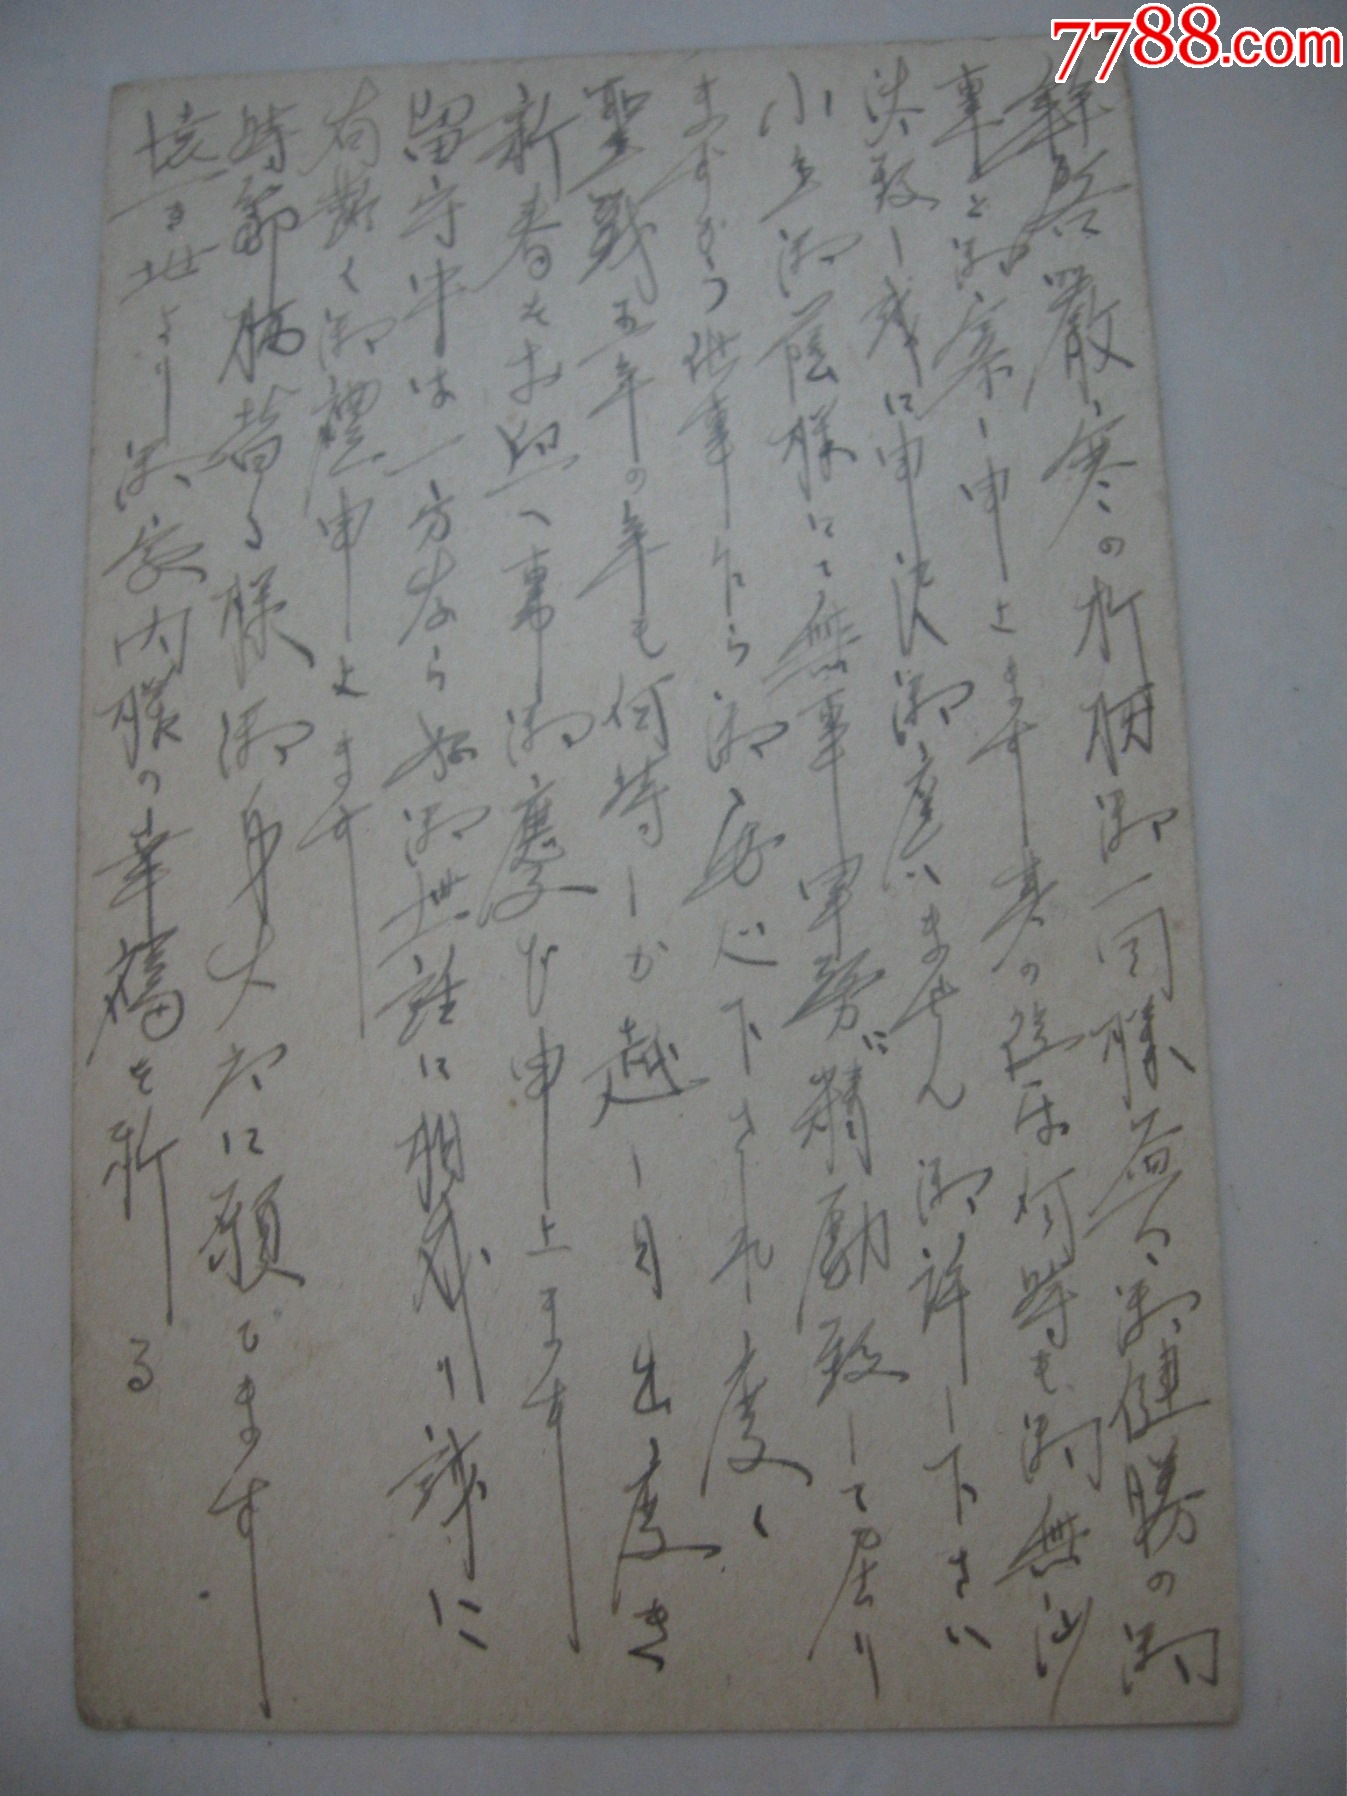 7788.com
拝啓 厳寒の折柄御一同様益々御健勝の御
事と御察し申上ます其の後は何時も御無沙
汰致し誠に申訳御座いません御許し下さい
小生御蔭様にて無事軍務に精励致して居り
ますから他事乍ら御安心下され度く
聖戦五年の年も何時しか越し目出度き
新春をお迎へ事御慶び申上ます
留守中は一方ならぬ御世話に相成り誠に
有難く御礼申上ます
時節柄皆る様御身大切に願ひます
遠き地より御家内様の幸福を祈る